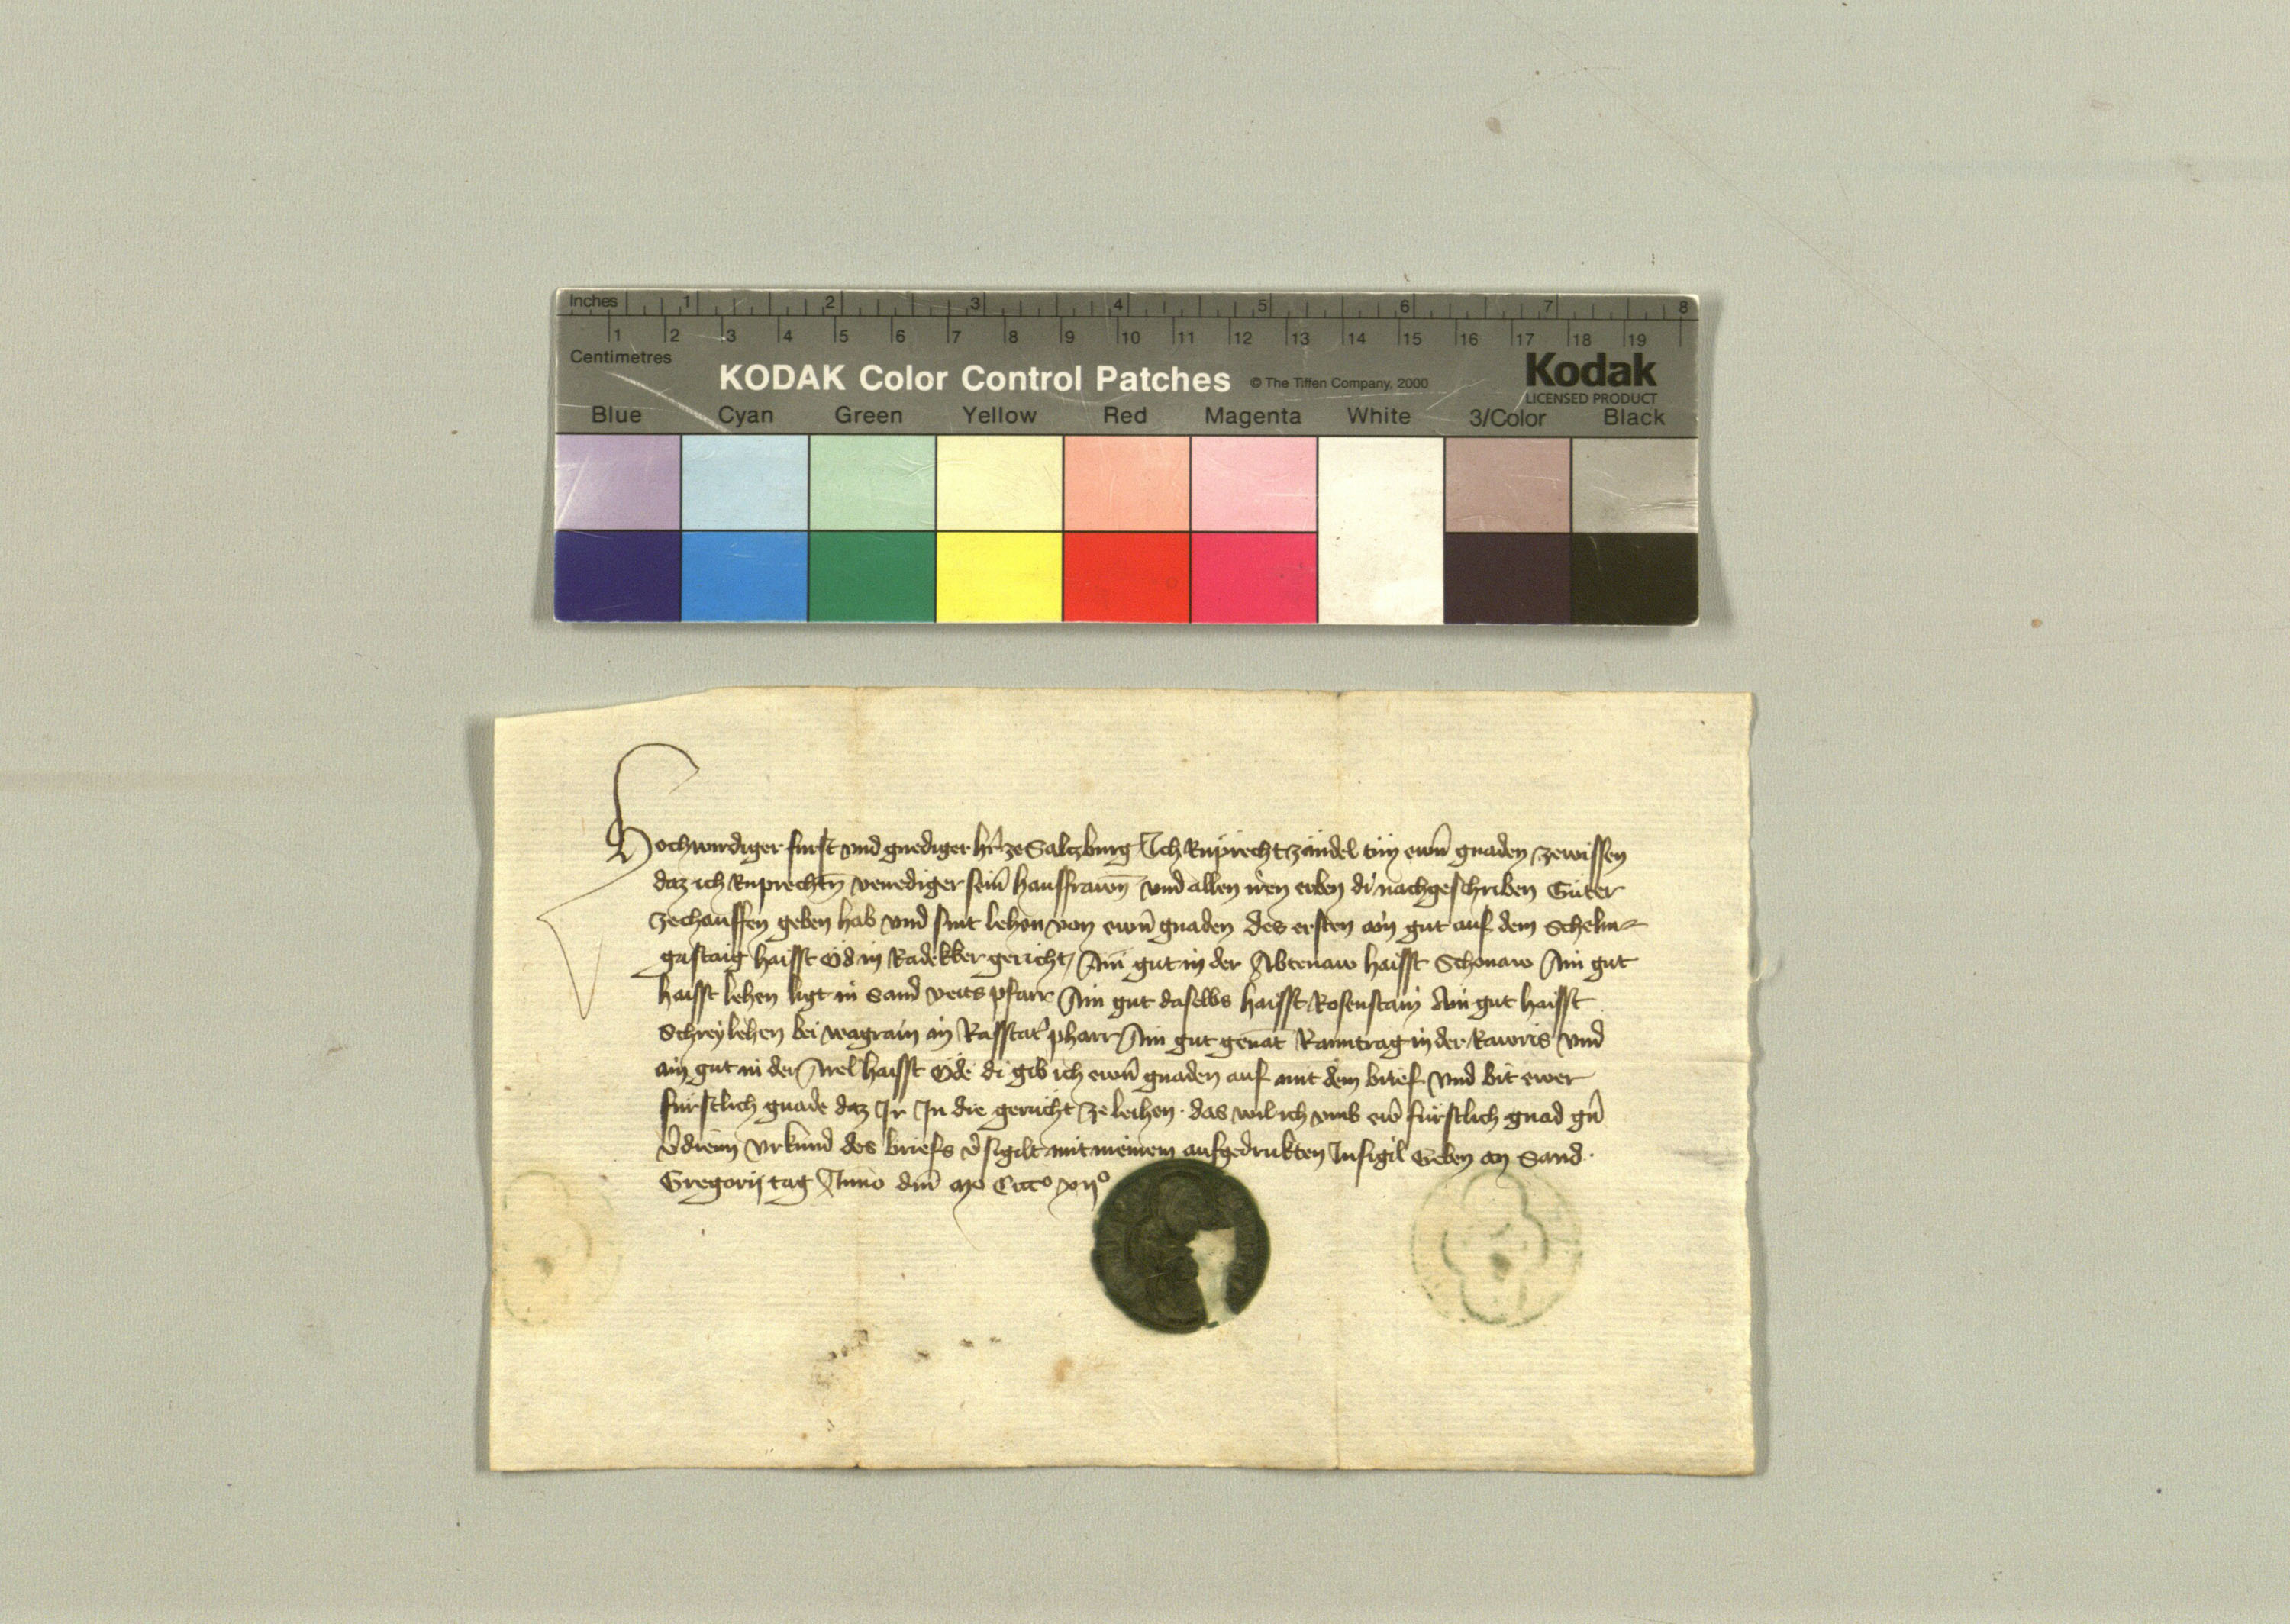 Inches 1 2 3 4 5 6 7 8
1 2 3 4 5 6 7 8 9 10 11 12 13 14 15 16 17 18 19
Centimetres
KODAK Color Control Patches © The Tiffen Company, 2000 Kodak
LICENSED PRODUCT
Blue Cyan Green Yellow Red Magenta White 3/Color Black
Hochwirdiger furst vnd gnediger hr̄ ze Saltzburg Ich Ruprecht Zändel tün ewrn̄ gnaden zewissen
daz ich Ruprechtn̄ venediger sein̄ hausfrawen̄ vnd allen iren erben di nachgeschriben Güter
zechauffen geben hab vnd sint lehen von ewrn̄ gnaden des ersten ain gut auf dem Schelm-
gastaig haisst Öd in Radekker gericht Ain gut in der Abtenaw haisst Schönaw Ain gut
haisst lehen ligt in Sand veits pfarr Ain gut daselbs haisst Rosenstain Ain gut haisst
Schreylehen bei wagrain in Rasstat' pharr Ain gut genāt Ramtrag in der Rawris vnd
ain gut in der haisst Öde di gib ich ewrn̄ gnaden auf mit dem brief vnd bit ewer
fürstlich gnade daz Ir In die geruicht ze leihen das wil ich vmb ewr̄ fürstlich gnad gn̄
v'dienn vrkund des briefs v'sigilt mit meinem aufgedrukten Insigil Geben an Sand
Gregorij tag Anno dm̄ mo Cccco xijo